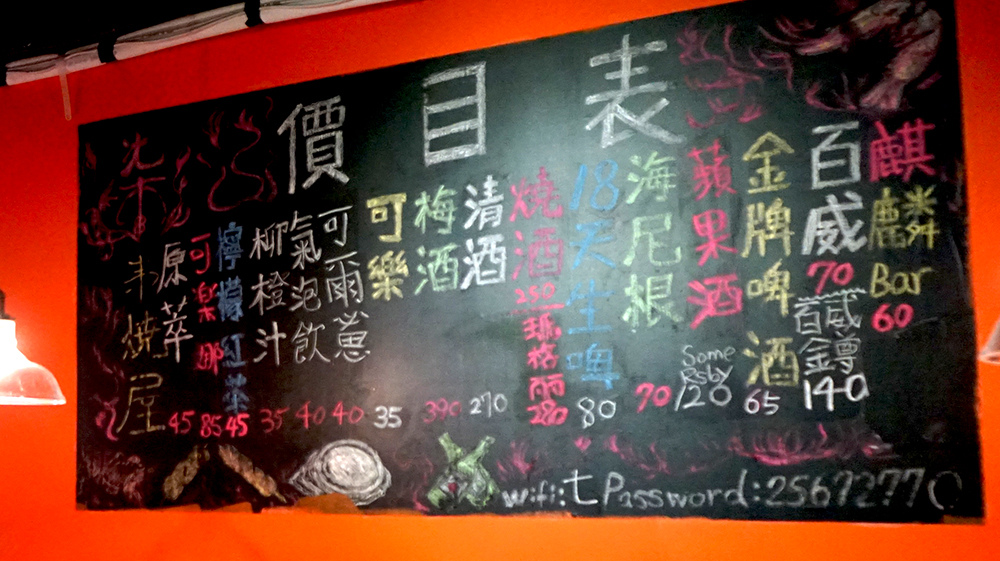 價目表
麒麟 Bar 60
百威 70
百威金尊 140
金牌啤酒 65
蘋果酒
Some
Rsby
120
海尼根 70
18天生啤 80
燒酒 250
瑪格丽 280
清酒 270
梅酒 390
可樂 35
可爾
40
氣泡飲 40
柳橙汁 35
檸檬紅茶 45
可樂娜 85
原萃 45
串燒屋
wifi: t Password: